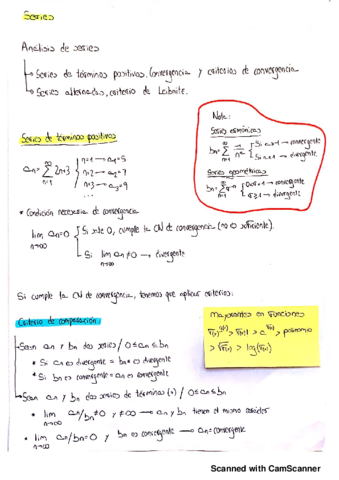 Series
Análisis de series
Series de términos positivos. Convergencia y criterios de convergencia
Series alternadas, criterio de Leibnitz.
Nota:
Series armónicas
bn = ∑ 1/n^α { Si α>1 → convergente
Si α≤1 → divergente
Series geométricas
{ 0≤r<1 → convergente
r≥1 → divergente
Series de términos positivos
an = ∑ 2n+3 { n=1 → a1=5
n=2 → a2=7
n=3 → a3=9
...
* Condición necesaria de convergencia
lim an=0 { Si sale 0, cumple la CN de convergencia (no suficiente).
n→∞
Si lim an≠0 → divergente
n→∞
Si cumple la CN de convergencia, tenemos que aplicar criterios:
Criterio de comparación:
Sean an y bn dos series / 0≤an≤bn
* Si an es divergente = bn es divergente
* Si bn es convergente = an es convergente
Majorantes en funciones
> polinomio
> log
Sean an y bn dos series de términos (+) / 0≤an≤bn
* lim an/bn ≠0 y ≠∞ → an y bn tienen el mismo carácter
n→∞
* lim an/bn=0 y bn es convergente → an=convergente
n→∞
Scanned with CamScanner